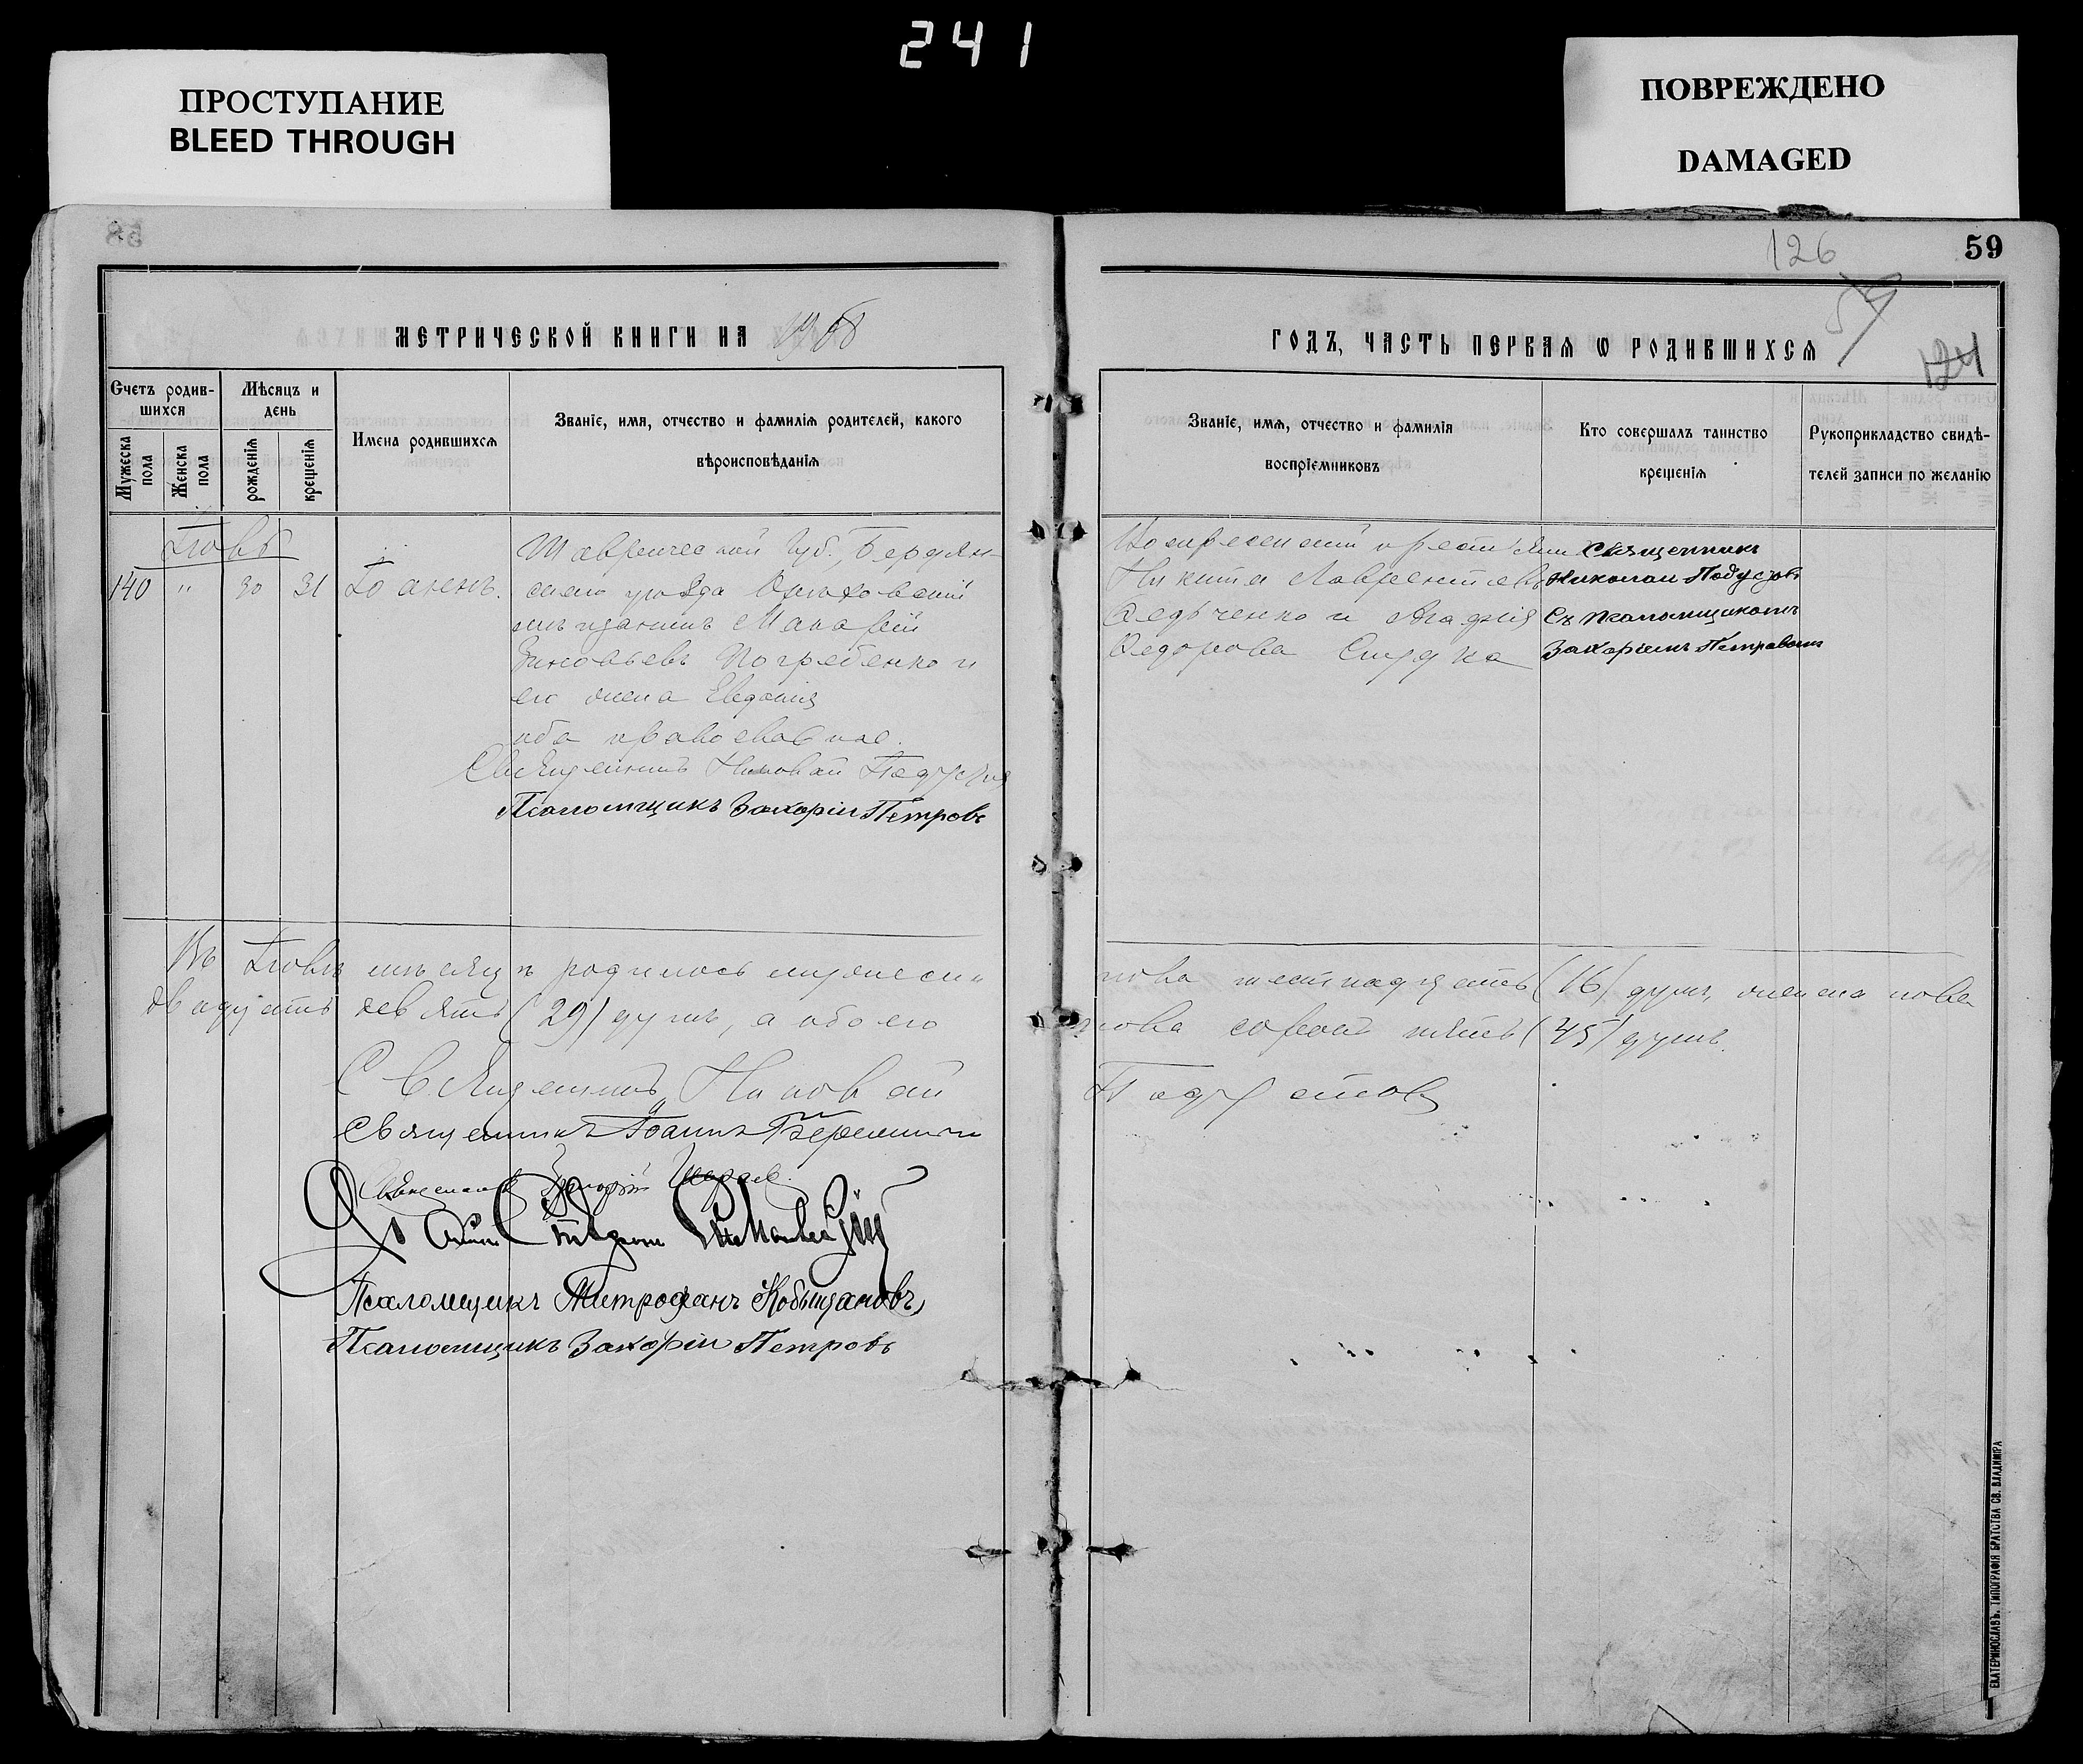 241
ПРОСТУПАНИЕ
BLEED THROUGH
ПОВРЕЖДЕНО
DAMAGED
126
59
МЕТРИЧЕСКОЙ КНИГИ НА 1908
ГОДЪ, ЧАСТЬ ПЕРВАЯ Ѡ РОДИВШИХСЯ
124
Счетъ родив-
шихся
Мужеска пола
Женска пола
Мѣсяцъ и
день
рожденія
крещенія
Имена родившихся
Званіе, имя, отчество и фамилія родителей, какого
вѣроисповѣданія
Званіе, имя, отчество и фамилія
воспріемниковъ
Кто совершалъ таинство
крещенія
Рукоприкладство свидѣ-
телей записи по желанію
Іюль
140 " 30 31 Іоаннъ.
Таврической Губ., Бердян-
скаго уѣзда
мѣщанинъ
Зиновьевъ Погребенко и
его жена Евдокія
оба православные.
Священникъ Николай
Псаломщикъ Захарій Петровъ
Никита Лаврентьевъ
Ѳедченко и Агафія
Ѳедорова
Священникъ
Николай Подустовъ
Съ псаломщикомъ
Захаріемъ Петровымъ
Въ Іюлѣ мѣсяцѣ родилось мужеска
пола шестнадцать (16) душъ, женска пола
двадцать девять (29) душъ, а обоего
пола сорокъ пять (45) душъ.
Священникъ Николай
Священникъ Іоаннъ
Священникъ
Псаломщикъ Митрофанъ Кобыщановъ
Псаломщикъ Захарій Петровъ
ЕКАТЕРИНОСЛАВЪ. ТИПОГРАФІЯ БРАТСТВА СВ. ВЛАДИМІРА